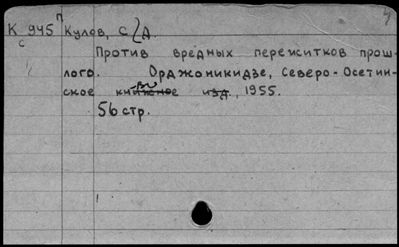 К 945 п Кулов, С. Д.
с
Против вредных пережитков прош-
лого. Орджоникидзе, Северо-Осетин-
ское книжное изд., 1955.
56 стр.